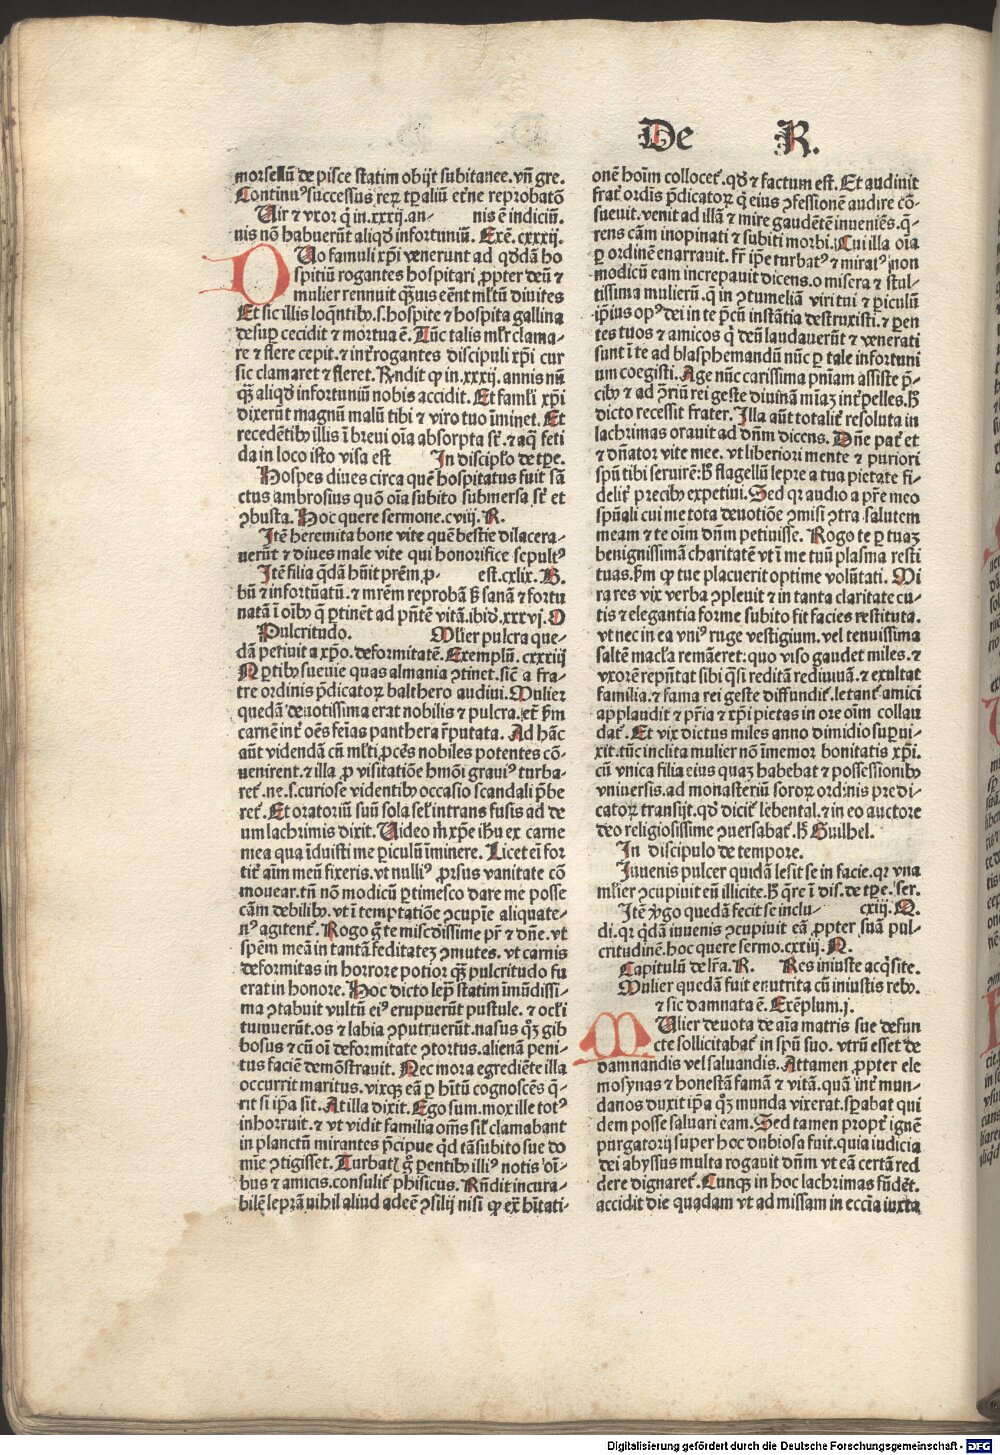 De R.
morsellū de pisce statim obijt subitanee. vn̄ gre.
Continuꝰ successus reꝝ tp̄aliū etne reprobatō
Uir ⁊ vxor q̄ in.xxxij.an- nis ē indiciū.
nis nō habuerūt aliqd̓ infortuniū. Exē. cxxxij.
DUo famuli xp̄i venerunt ad qd̓dā ho
spitiū rogantes hospitari ꝓpter deū ⁊
mulier rennuit qᷓꝫuis eēnt ml̓tū diuites
Et sic illis loq̄ntibꝰ.s.hospite ⁊ hospita gallina
desuꝑ cecidit ⁊ mortua ē. Nūc talis ml̓r clama-
re ⁊ flere cepit. ⁊ int̓rogantes discipuli xp̄i cur
sic clamaret ⁊ fleret. Rn̄dit ꝙ in.xxxij. annis nū
qᷓꝫ aliqd̓ infortuniū nobis accidit. Et famli̓ xp̄i
dixerūt magnū malū tibi ⁊ viro tuo īminet. Et
recedētibꝰ illis ī breui oīa absorpta st̄. ⁊ aq̄ feti
da in loco isto visa est In discipl̓o de tꝑe.
Hospes diues circa quē hospitatus fuit sā
ctus ambrosius quō oīa subito submersa st̄ et
ꝯbusta. Hoc quere sermone.cviij. R.
Itē heremita bone vite quē bestie dilacera-
uerūt ⁊ diues male vite qui honorifice sepultꝰ
Itē filia q̄dā hūit prēm.p- est.cxlix. B.
bū ⁊ infortūatū. ⁊ mrēm reprobā sꝫ sanā ⁊ fortu
natā ī oībꝰ q̄ ꝑtinēt ad pn̄tē vitā.ibid̓.xxxvj. O
Pulcritudo. Mlier pulcra que-
dā petiuit a xp̄o. deformitatē. Exemplū. cxxxiij
IN ꝑtibꝰ sueuie quas almania ꝯtinet.sic̄ a fra-
tre ordinis p̄dicatoꝝ balthero audiui. Mulier
quedā deuotissima erat nobilis ⁊ pulcra.et̄ ẜm
carnē int̓ oēs feīas panthera r̄putata. Ad hāc
aūt videndā cū ml̓ti ꝓcēs nobiles potentes cō-
uenirent.⁊ illa ꝓ visitatiōe hm̄oi grauiꝰ turba-
ret̓. ne.s.curiose videntibꝰ occasio scandali p̄be
ret̓. Et oratoriū suū sola sel̓ intrans fusis ad de
um lachrimis dixit. Uideo m̄ xp̄e ihu ex carne
mea qua īduisti me ꝑiculū īminere. Licet eī for
tit̓ aīm meū fixeris. vt nulliꝰ ꝓrsus vanitate cō
mouear. tn̄ nō modicū ꝑtimesco dare me posse
cām debilibꝰ. vt ī temptatiōe ꝯcupīe aliquate-
nꝰ agitent̓. Rogo g̊ te misc̄dissime pr̄ ⁊ dn̄e. vt
spēm meā in tantā feditatez ꝯmutes. vt carnis
deformitas in horrore potior qᷓꝫ pulcritudo fu
erat in honore. Hoc dicto lep̄ statim īmūdissi-
ma ꝯtabuit vultū eiꝰ erupuerūt pustule. ⁊ ocl̓i
tumuerūt. os ⁊ labia ꝯputruerūt. nasus qꝫ gib
bosus ⁊ cū oī deformitate ꝯtortus. alienā peni-
tus faciē demōstrauit. Nec mora egrediēte illa
occurrit maritus. vixqꝫ eā ꝑ hītū cognoscēs q̄-
rit si ip̄a sit. At illa dixit. Ego sum. mox ille totꝰ
inhorruit. ⁊ vt vidit familia om̄s sil̓ clamabant
in planctū mirantes p̄cipue qd̓ tā subito sue do
mie ꝯtigisset. Turbati g̊ ꝑentibꝰ illiꝰ notis oī-
bus ⁊ amicis. consulit̓ phisicus. Rn̄dit incura-
bilē leprā. nihil aliud adeē ꝯsilij nisi ꝙ ex̄ hītati-
onē hoīm collocet̓. qd̓ ⁊ factum est. Et audiuit
frat̓ ordīs p̄dicatoꝝ q̄ eius ꝯfessionē audire cō-
sueuit. venit ad illā ⁊ mire gaudētē inueniēs. q̄-
rens cām inopinati ⁊ subiti morbi. Cui illa oīa
ꝑ ordinē enarrauit. fr̄ ip̄e turbatꝰ ⁊ miratꝰ non
modicū eam increpauit dicens. o misera ⁊ stul-
tissima mulierū. q̄ in ꝯtumeliā viri tui ⁊ ꝑiculū
ip̄ius opꝰ dei in te p̄cū instātia destruxisti. ⁊ ꝑen
tes tuos ⁊ amicos q̄ deū laudauerūt ⁊ venerati
sunt ī te ad blasphemandū nūc ꝑ tale infortuni
um coegisti. Age nūc carissima pn̄iam assiste p̄-
cibꝰ ⁊ ad ꝓriū rei geste diuinā mīaꝫ int̓pelles. Hꝫ
dicto recessit frater. Illa aūt totalit̓ resoluta in
lachrimas orauit ad dn̄m dicens. Dn̄e pat̓ et
⁊ dn̄ator vite mee. vt liberiori mente ⁊ puriori
spū tibi seruirē: hꝫ flagellū lepre a tua pietate fi-
delit̓ precibꝰ expetiui. Sed qr audio a pr̄e meo
spūali cui me tota deuotiōe ꝯmisi ꝯtra salutem
meam ⁊ te oīm dn̄m petiuisse. Rogo te ꝑ tuaꝫ
benignissimā charitatē vt ī me tuū plasma resti
tuas. ẜm ꝙ tue placuerit optime volūtati. Mi
ra res vix verba ꝯpleuit ⁊ in tanta claritate cu-
tis ⁊ elegantia forme subito fit facies restituta.
vt nec in ea vniꝰ ruge vestigium. vel tenuissima
saltē macl̓a remāeret: quo viso gaudet miles. ⁊
vxorē repn̄tat sibi qͣsi reditā rediuiuā. ⁊ exultat
familia. ⁊ fama rei geste diffundit̓. letant̓ amici
applaudit ⁊ pr̄ia ⁊ xp̄i pietas in ore oīm collau
dat̓. Et vix dictus miles anno dimidio suꝑui-
xit. tūc inclita mulier nō īmemor bonitatis xp̄i.
cū vnica filia eius quaꝫ habebat ⁊ possessionibꝰ
vniuersis. ad monasteriū soroꝝ ordinis predi-
catoꝝ transijt. qd̓ dicit̓ lebental. ⁊ in eo auctore
deo religiosissime ꝯuersabat̓. hꝫ Guilhel.
In discipulo de tempore.
Iuuenis pulcer quidā lesit se in facie. qr vna
ml̓ier ꝯcupiuit eū illicite. hꝫ q̄re ī dis. de tꝑe. ser.
Itē vg̊o quedā fecit se inclu- cxiij. Q.
di. qr q̄dā iuuenis ꝯcupiuit eā ꝓpter suā pul-
critudinē. hoc quere sermo.cxxiij. N.
Capitulū de lr̄a. R. Res iniuste acq̄site.
Mulier quedā fuit enutrita cū iniustis rebꝰ.
⁊ sic damnata ē. Exēplum.j.
MUlier deuota de aīa matris sue defun
cte sollicitabat̓ in spū suo. vtrū esset de
damnandis vel saluandis. Attamen ꝓpter ele
mosynas ⁊ honestā famā ⁊ vitā. quā int̓ mun-
danos duxit ip̄a qꝫ munda vixerat. sꝑabat qui
dem posse saluari eam. Sed tamen propt̓ ignē
purgatorij super hoc dubiosa fuit. quia iudicia
dei abyssus multa rogauit dn̄m vt eā certā red
dere dignaret̓. Cunqꝫ in hoc lachrimas fūdēt.
accidit die quadam vt ad missam in ecc̄ia iuxta
Digitalisierung gefördert durch die Deutsche Forschungsgemeinschaft - DFG